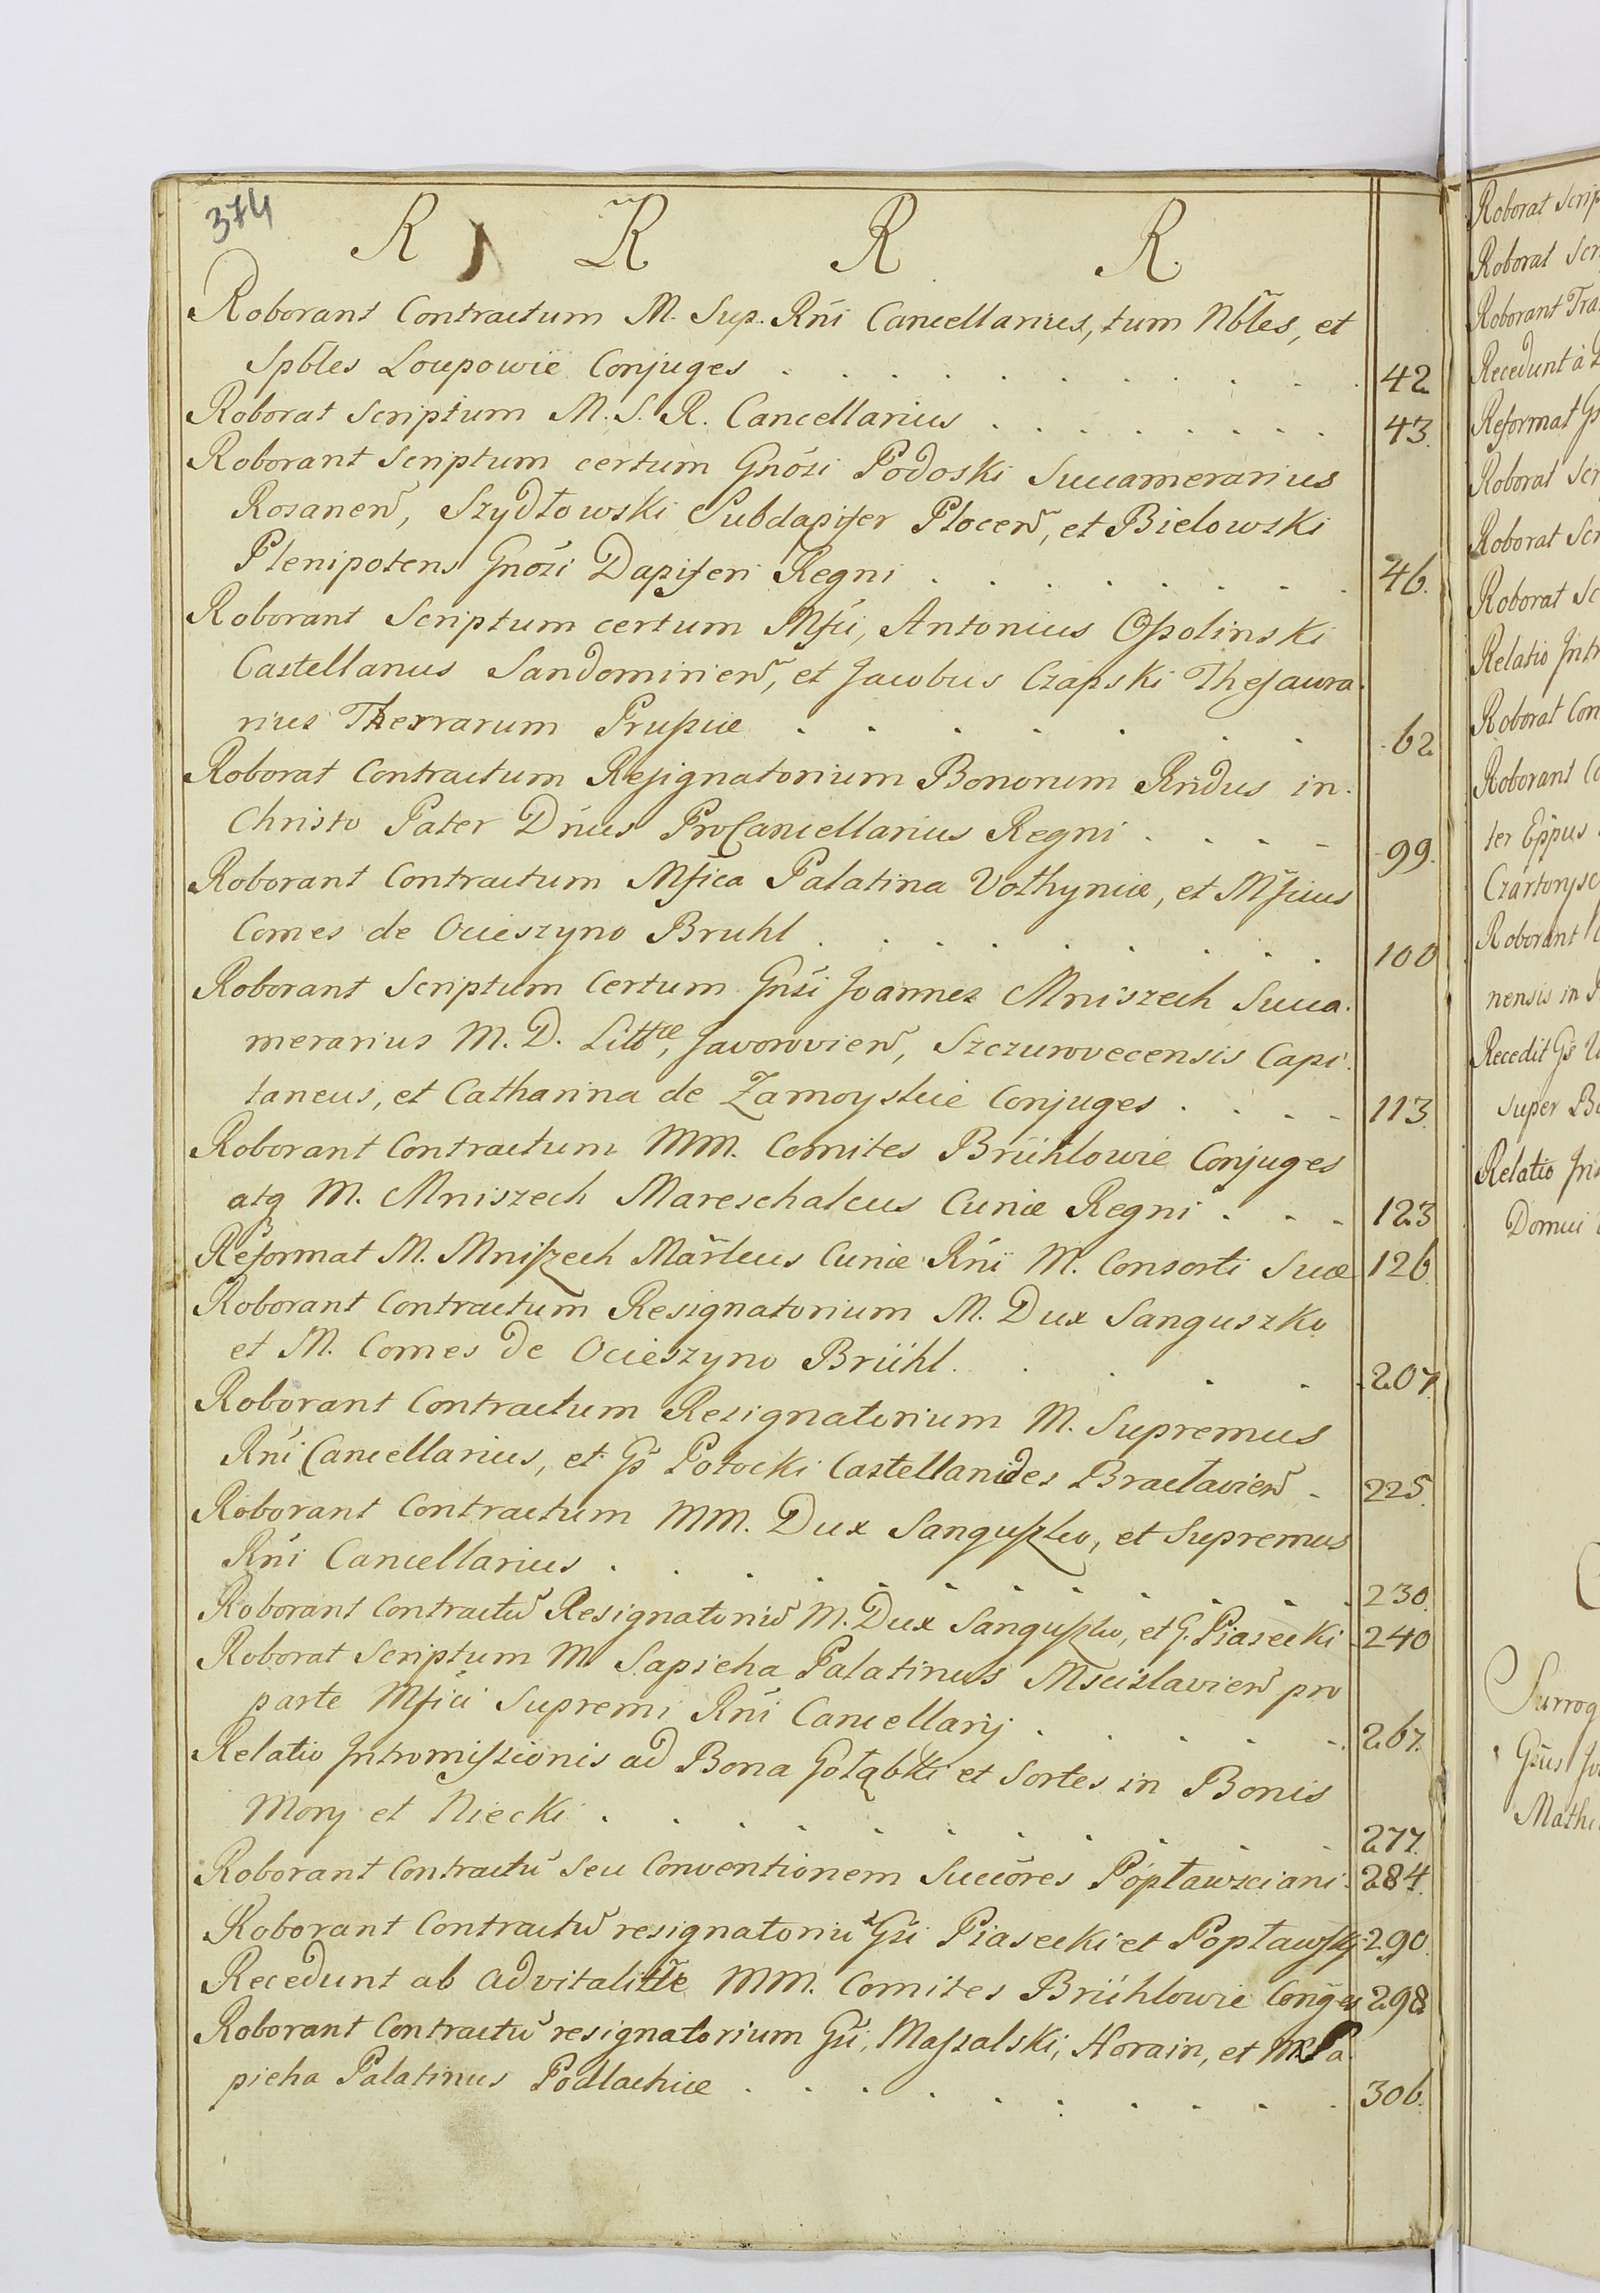 374
R R R R.
Roborant Contractum M. Sup. Rńi Cancellarius, tum Nb̃les, et
Spb̃les Loupowie Conjuges 42
Roborat Scriptum M. S. R. Cancellarius 43.
Roborant Scriptum certum Gnõsi Podoski Succamerarius
Rosaneñ, Szydłowski Subdapifer Ploceñ, et Bielowski
Plenipotens Gnõsi Dapiferi Regni 46.
Roborant Scriptum certum Mfci, Antonius Ossolinski
Castellanus Sandomirieñ, et Jacobus Czapski Thesaura-
rius Therrarum Prussiæ 62
Roborat Contractum Resignatorium Bonorum Rñdus in
Christo Pater Dñus ProCancellarius Regni 99.
Roborant Contractum Mfica Palatina Vołhyniæ, et Mficus
Comes de Ocieszyno Bruhl 100
Roborant Scriptum Certum Gñsi Joannes Mniszech Succa-
merarius M. D. Litt͠æ, Javorovieñ, Szczurovecensis Capi-
taneus, et Catharina de Zamoyskie Conjuges 113.
Roborant Contractum MM. Comites Brühlowie Conjuges
atq M. Mniszech Mareschalcus Curiæ Regni 123
Reformat M. Mniszech Marlcus Curiæ Rńi M. Consorti Suæ 126.
Roborant Contractum Resignatorium M. Dux Sanguszko
et M. Comes de Ocieszyno Brühl. 207.
Roborant Contractum Resignatorium M. Supremus
Rńi Cancellarius, et Gs̃ Potocki Castellanides Braclavieñ 225.
Roborant Contractum MM. Dux Sanguszko, et Supremus
Rńi Cancellarius 230.
Roborant Contractũ Resignatoriũ M. Dux Sanguszko, et G. Piasecki 240
Roborat Scriptum M. Sapieha Palatinus Mscislavieñ pro
parte Mfici Supremi Rńi Cancellarij 267.
Relatio Intromissionis ad Bona Gołąbki et Sortes in Bonis
Mory et Niecki 277.
Roborant Contractũ seu Conventionem Succõres Popławsciani 284.
Roborant Contractũ resignatoriũ Gs̃i Piasecki et Popławskij 290.
Recedunt ab advitalitte MM. Comites Brühlowie Conges 298
Roborant Contractũ resignatorium Gs̃i, Massalski, Horain, et M. Sa-
pieha Palatinus Podlachiæ 306.
Roborat Scrip
Roborat Scr
Roborant Tra
Recedunt à
Reformat Gs
Roborat Scr
Roborat Scr
Roborat Sc
Relatio Intr
Roborat Con
Roborant Co
ter Epp̃us
Czartorysc
Roborant
nensis in
Recedit Gs̃
super Bo
Relatio
Domui
Surrog
Gñus Jo
Mathi